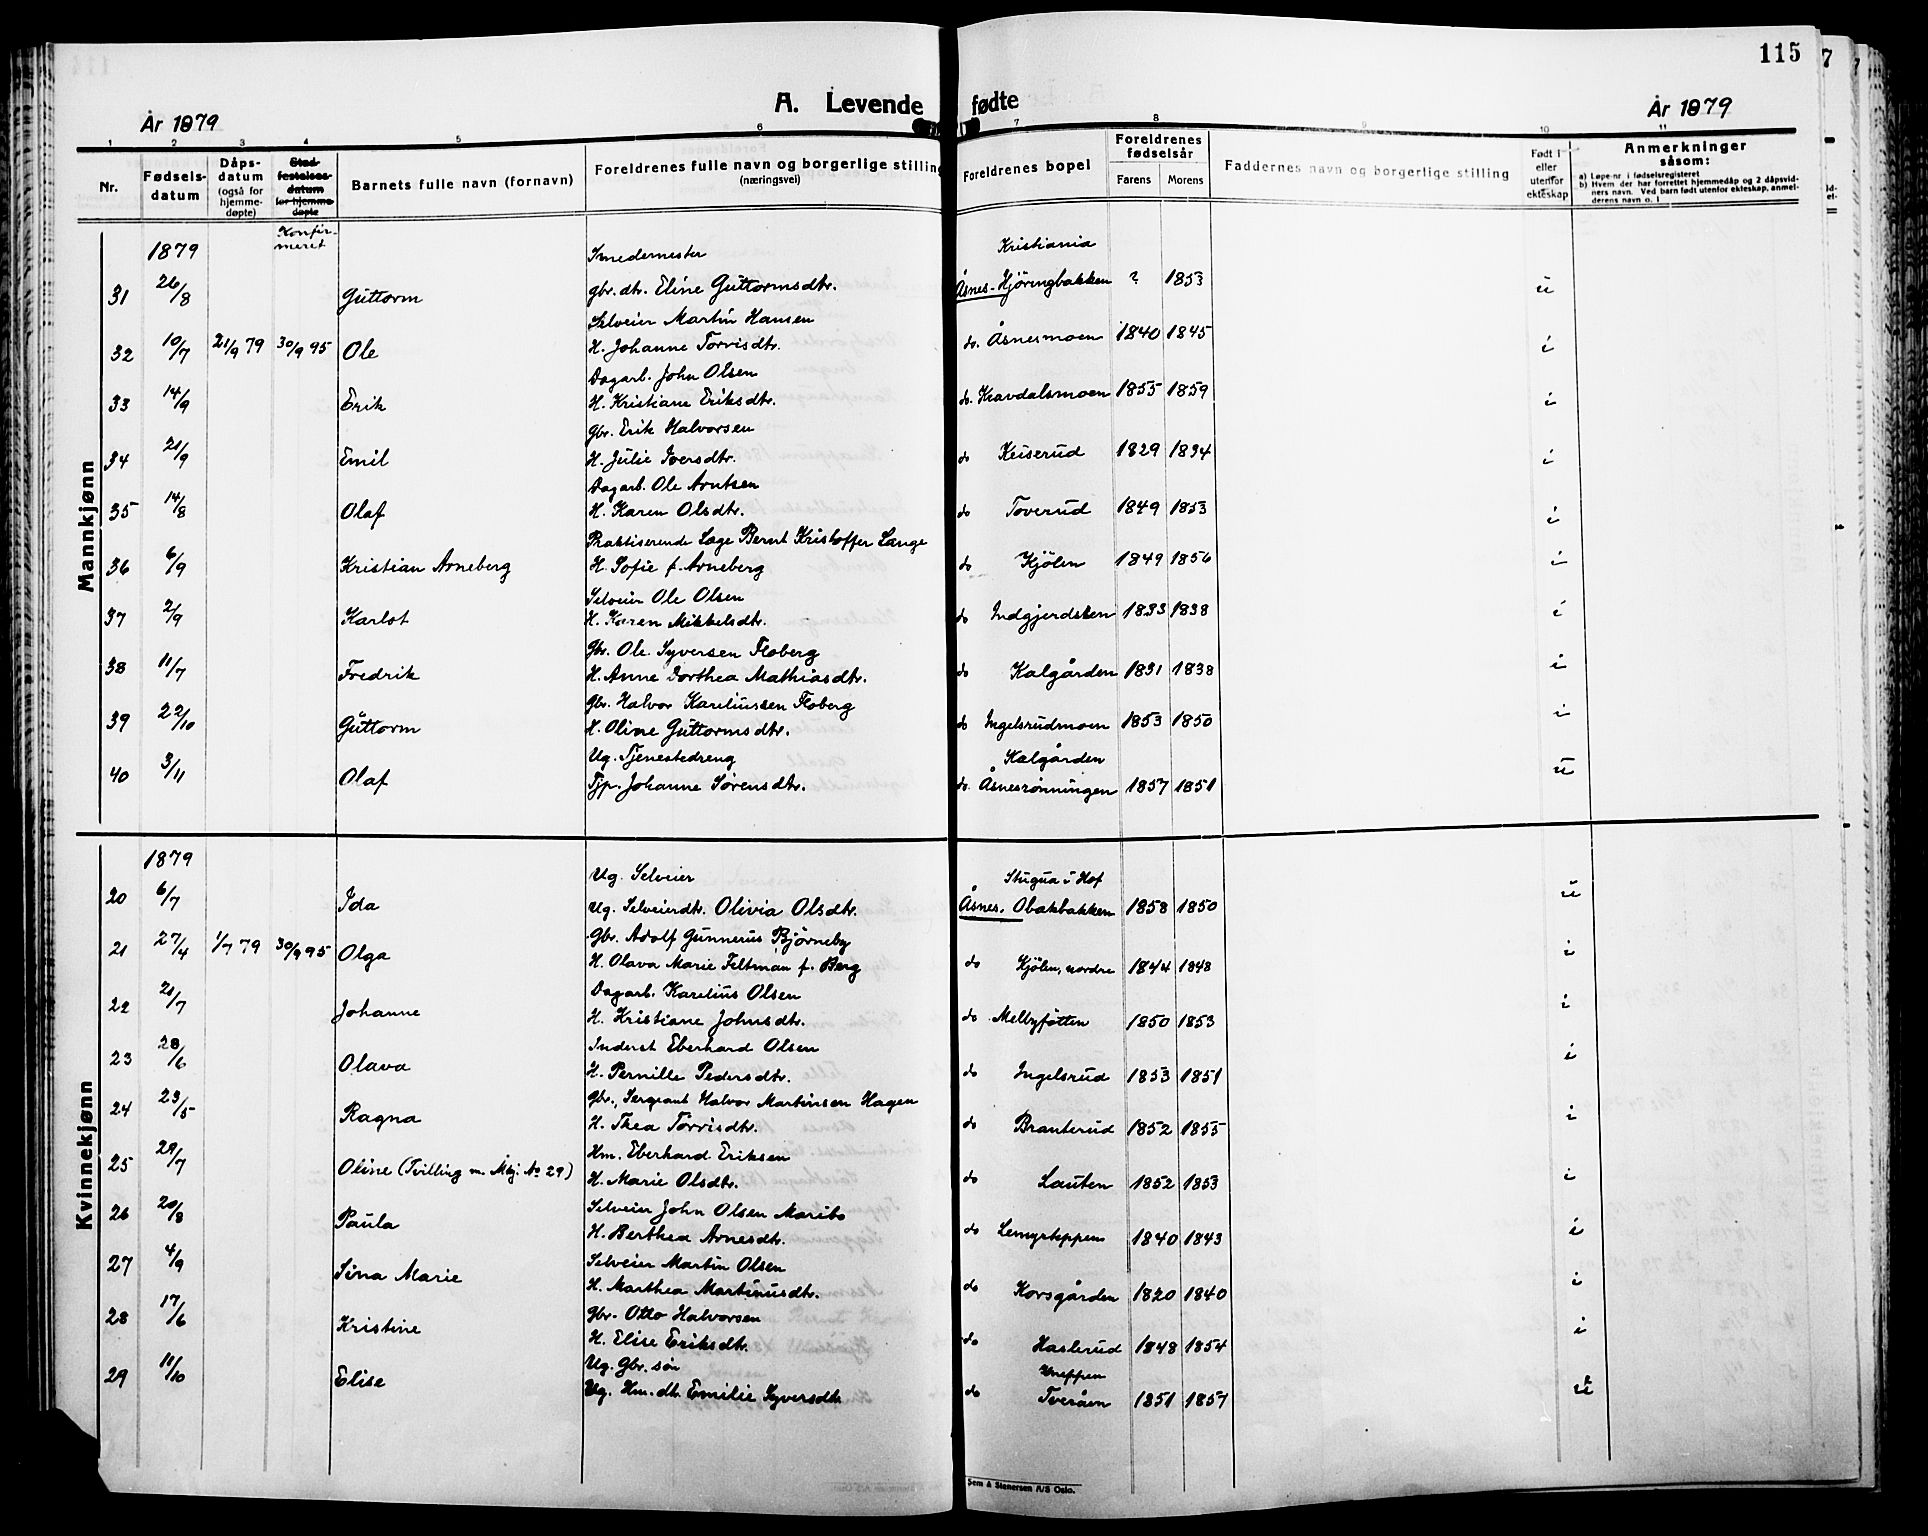 115
A. Levende fødte
År 1879
År 1879
1 2 3 4 5 6 7 8 9 10 11
Nr.
Fødselsdatum
Dåpsdatum (også for hjemmedøpte)
Stadfestelsesdatum for hjemmedøpte
Konfirmeret
Barnets fulle navn (fornavn)
Foreldrenes fulle navn og borgerlige stilling (næringsvei)
Foreldrenes bopel
Foreldrenes fødselsår
Farens Morens
Faddernes navn og borgerlige stilling
Født i eller utenfor ekteskap
Anmerkninger såsom:
a) Løpe-nr. i fødselsregisteret
b) Hvem der har forrettet hjemmedåp og 2 dåpsvidners navn. Ved barn født utenfor ekteskap, anmelderens navn o. l
Mannkjønn
1879 Smedemester Kristiania
31 26/8 Guttorm gbr. dtr. Eline Guttormsdtr. Åsnes-Hjøringbakken ? 1853 u
Selveier Martin Hansen
32 10/7 21/9 79 30/9 95 Ole H. Johanne Torvisdtr. do. Åsnesmoen 1840 1845 i
Dagarb. John Olsen
33 14/9 Erik H. Kristiane Eriksdtr. do. Kavdalsmoen 1855 1859 i
Gbr. Erik Halvorsen
34 21/9 Emil H. Julie Iversdtr. do Keiserud 1829 1834 i
Dagarb. Ole Arntsen
35 14/8 Olaf H. Karen Olsdtr. do Toverud 1849 1853 i
Praktiserende Læge Bernt Kristoffer Lange
36 6/9 Kristian Arneberg H. Sofie f. Arneberg do Kjölen 1849 1856 i
Selveier Ole Olsen
37 2/9 Karlot H. Karen Mikkelsdtr. do Indgjerdsten 1833 1838 i
Gbr. Ole Syversen Floberg
38 11/7 Fredrik H. Anne Dorthea Mathiasdtr. do Kalgården 1831 1838 i
Gbr. Halvor Kareliussen Floberg
39 22/10 Guttorm H. Oline Guttormsdtr. do Ingelsrudmoen 1853 1850 i
Ug. Tjenestedreng Kalgården
40 3/11 Olaf Tjp. Johanne Sørensdtr. do. Åsnesrönningen 1857 1851 u
Kvinnekjønn
1879 Ug. Selveier Stugua i Hof
20 6/7 Ida Ug. Selveierdtr. Olivia Olsdtr. Åsnes. Obakbakken 1858 1850 u
Gbr. Adolf Gunnerus Bjørneby
21 27/4 1/7 79 30/9 95 Olga H. Olava Marie Feltman f. Berg do Kjölen, nordre 1844 1848 i
Dagarb. Karelius Olsen
22 21/7 Johanne H. Kristiane Johnsdtr. do Melbyføtten 1850 1853 i
Inderst Eberhard Olsen
23 28/6 Olava H. Pernille Pedersdtr. do Ingelsrud 1853 1851 i
Gbr., Sergeant Halvor Martinsen Hagen
24 23/5 Ragna H. Thea Törrisdtr. do Branterud 1852 1855 i
Hm. Eberhard Eriksen
25 29/7 Oline (Tvilling m. Mkj. No 29) H. Marie Olsdtr. do Lauten 1852 1853 i
Selveier John Olsen Maribo
26 20/8 Paula H. Berthea Arnesdtr. do Lemyrteppen 1840 1843 i
Selveier Martin Olsen
27 4/9 Sina Marie H. Marthea Martinusdtr. do Korsgården 1820 1840 i
Gbr. Otto Halvorsen
28 17/6 Kristine H. Elise Eriksdtr. do Haslerud 1848 1854 i
Ug. Gbr. søn Kneppen
29 11/10 Elise Ug. Hm. dtr. Emilie Syversdtr. do Tveråen 1851 1857 u
Sem & Stenersen A/S Oslo.